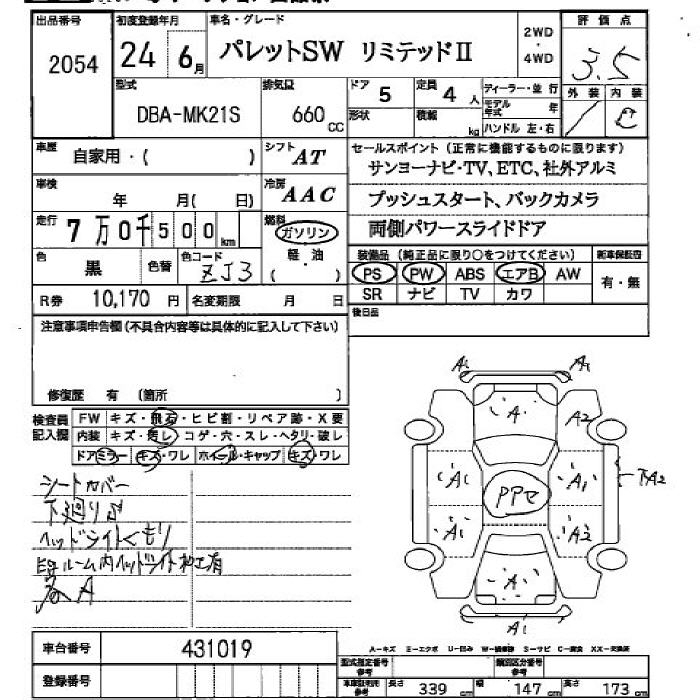 出品番号 初度登録年月 車名・グレード 評価点
2054 24 6月 パレットSW リミテッドⅡ 2WD・4WD 3.5
型式 排気量 ドア 定員 ディーラー・並行 外装 内装
DBA-MK21S 660cc 5 4人 モデル年式 年 C
形状 積載 kg ハンドル 左・右
車歴 シフト セールスポイント(正常に機能するものに限ります)
自家用・( ) AT サンヨーナビ・TV、ETC、社外アルミ
車検 冷房 プッシュスタート、バックカメラ
年 月( 日) AAC
走行 燃料 両側パワースライドドア
7万0千500km ガソリン
色 色コード 軽・油 装備品(純正品に限り○をつけてください) 新車保証書
黒 色替 ZJ3 ( ) PS PW ABS エアB AW 有・無
SR ナビ TV カワ
R券 10,170円 名変期限 月 日 後日品
注意事項申告欄(不具合内容等は具体的に記入して下さい)
修復歴 有 (箇所 )
検査員 FW キズ・飛石・ヒビ割・リペア跡・X要
記入欄 内装 キズ・汚レ・コゲ・穴・スレ・ヘタリ・破レ
ドアミラー キズ・ワレ ホイール・キャップ キズ・ワレ
シートカバー
下廻りサ
ヘッドライトくもり
ルーム内ヘッドライト加工有
A
A1 A1
A A2
A1 PPセ A1 下A2
A1 A2
A
A1
A-キズ E-エクボ U-凹み W-補修跡 S-サビ C-腐食 XX-交換済
車台番号 431019
型式指定番号 参考 類別区分番号 参考
登録番号 車車証利用 参考 長さ 339cm 幅 147cm 高さ 173cm